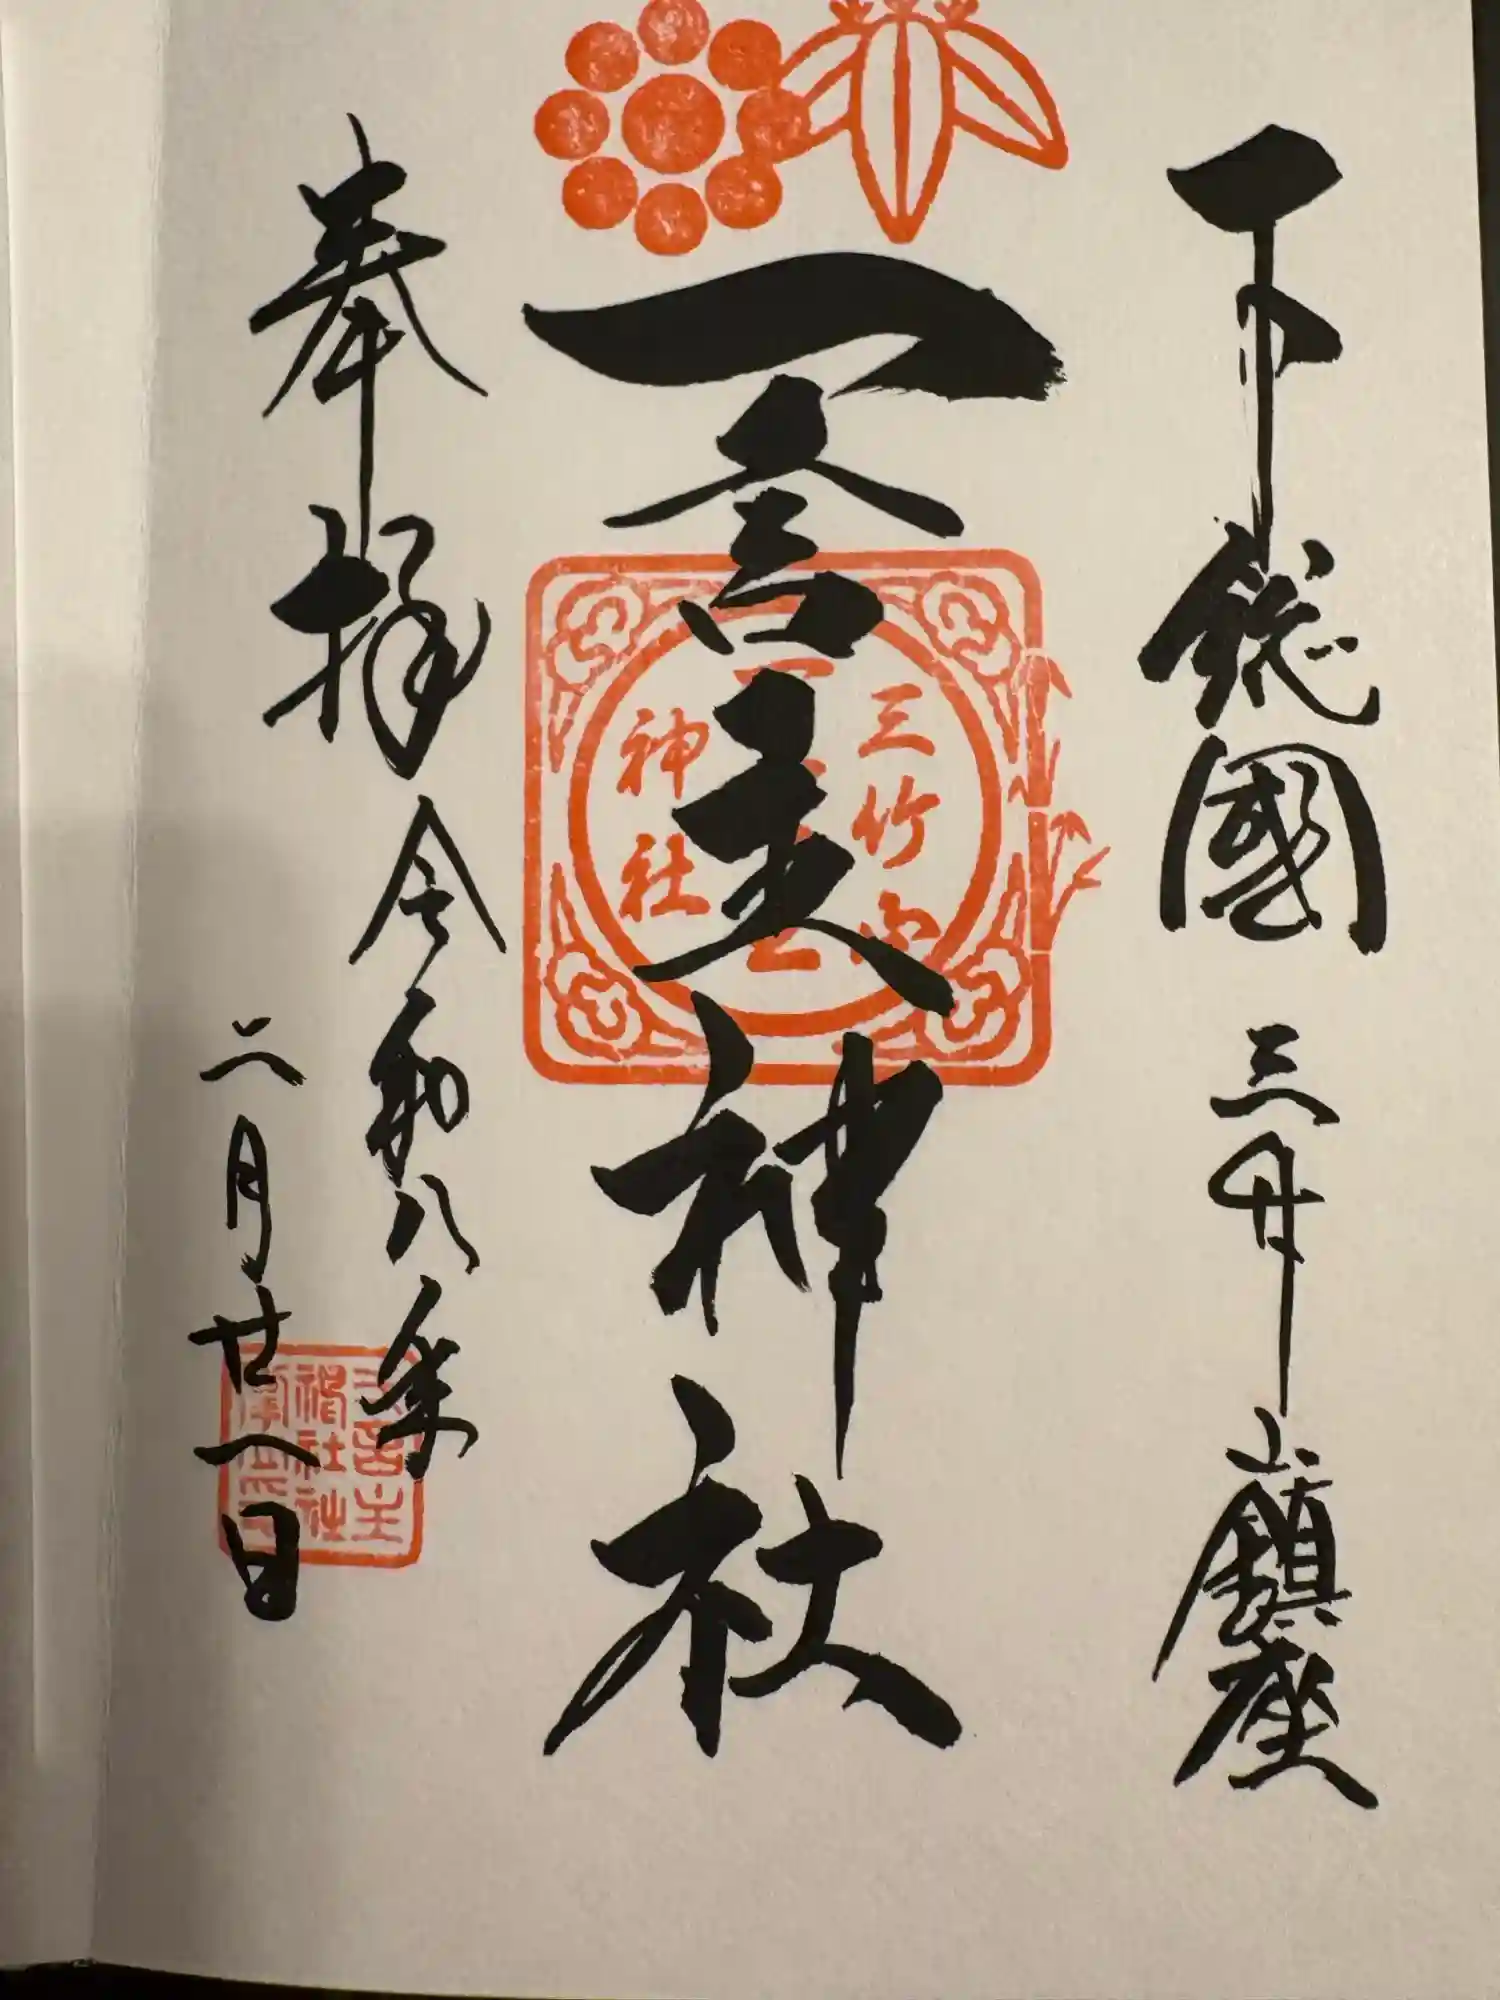 下総國 三竹山鎮座
一言主神社
奉拝
令和八年
二月廿一日
三竹山
一言主
神社